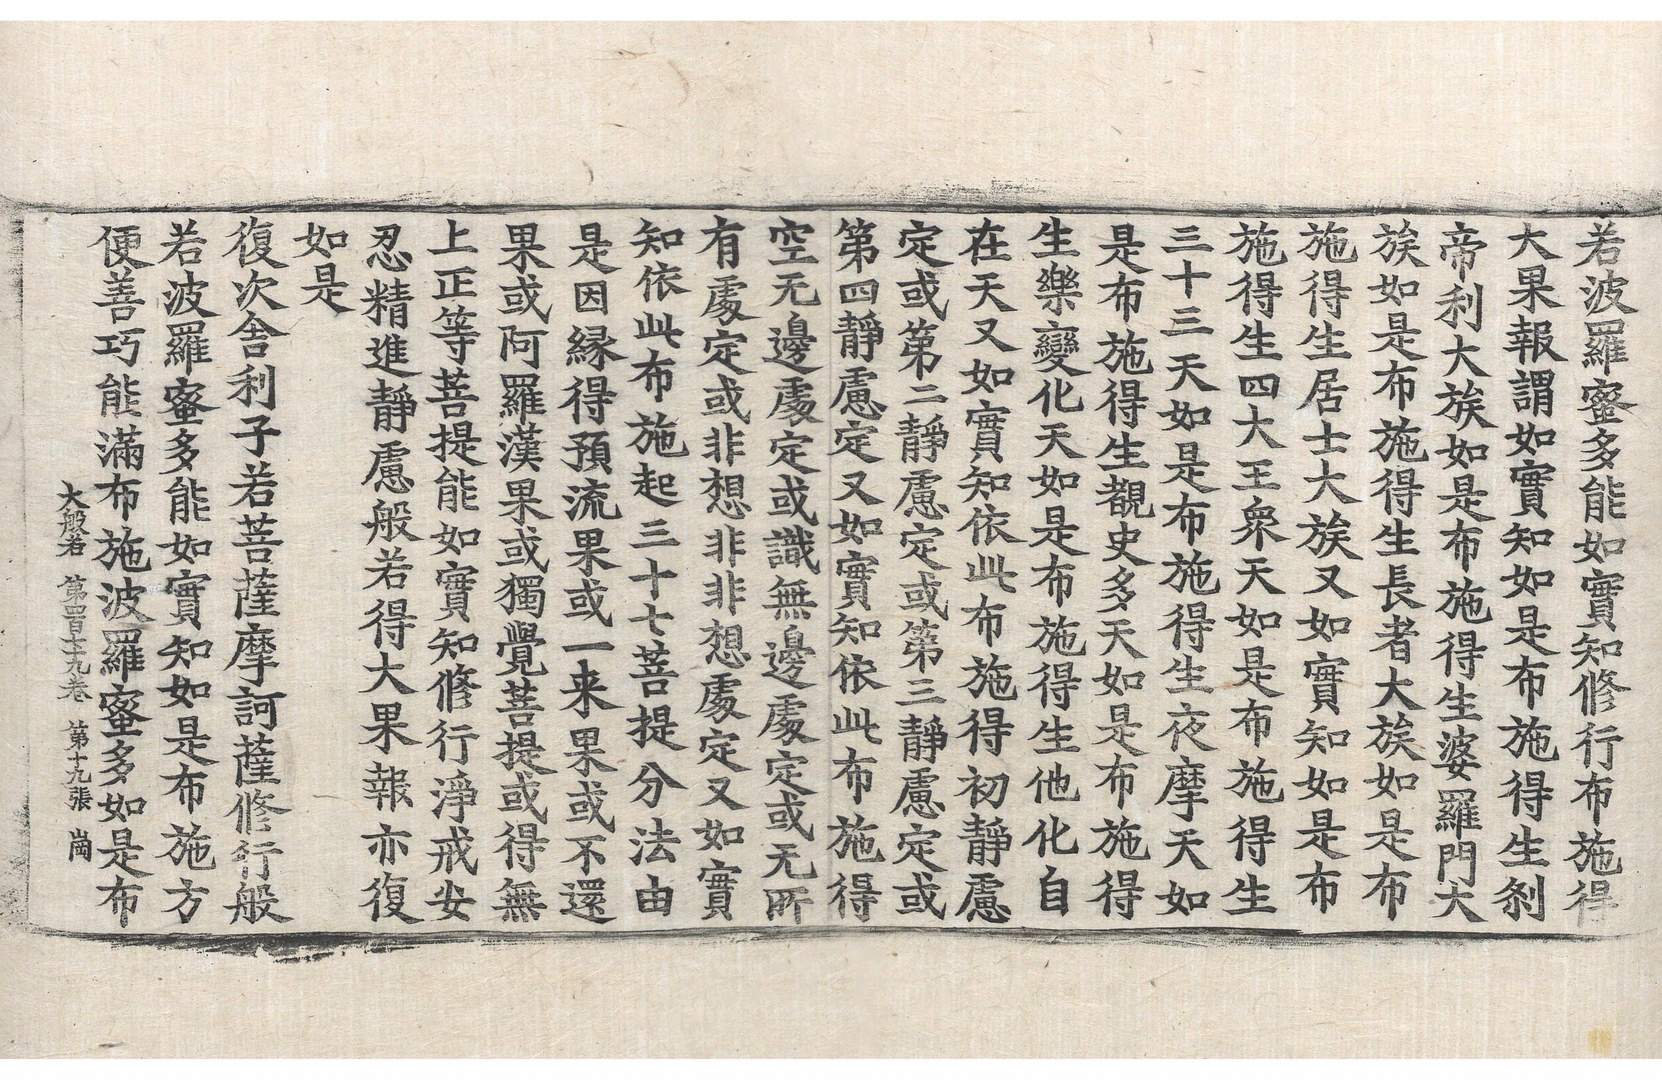 若波羅蜜多能如實知修行布施得
大果報謂如實知如是布施得生剎
帝利大族如是布施得生婆羅門大
族如是布施得生長者大族如是布
施得生居士大族又如實知如是布
施得生四大王衆天如是布施得生
三十三天如是布施得生夜摩天如
是布施得生覩史多天如是布施得
生樂變化天如是布施得生他化自
在天又如實知依此布施得初靜慮
定或第二靜慮定或第三靜慮定或
第四靜慮定又如實知依此布施得
空无邊處定或識無邊處定或无所
有處定或非想非非想處定又如實
知依此布施起三十七菩提分法由
是因緣得預流果或一来果或不還
果或阿羅漢果或獨覺菩提或得無
上正等菩提能如實知修行淨戒安
忍精進靜慮般若得大果報亦復
如是
復次舍利子若菩薩摩訶薩修行般
若波羅蜜多能如實知如是布施方
便善巧能滿布施波羅蜜多如是布
大般若 第四百七十九卷 第十九張 崗